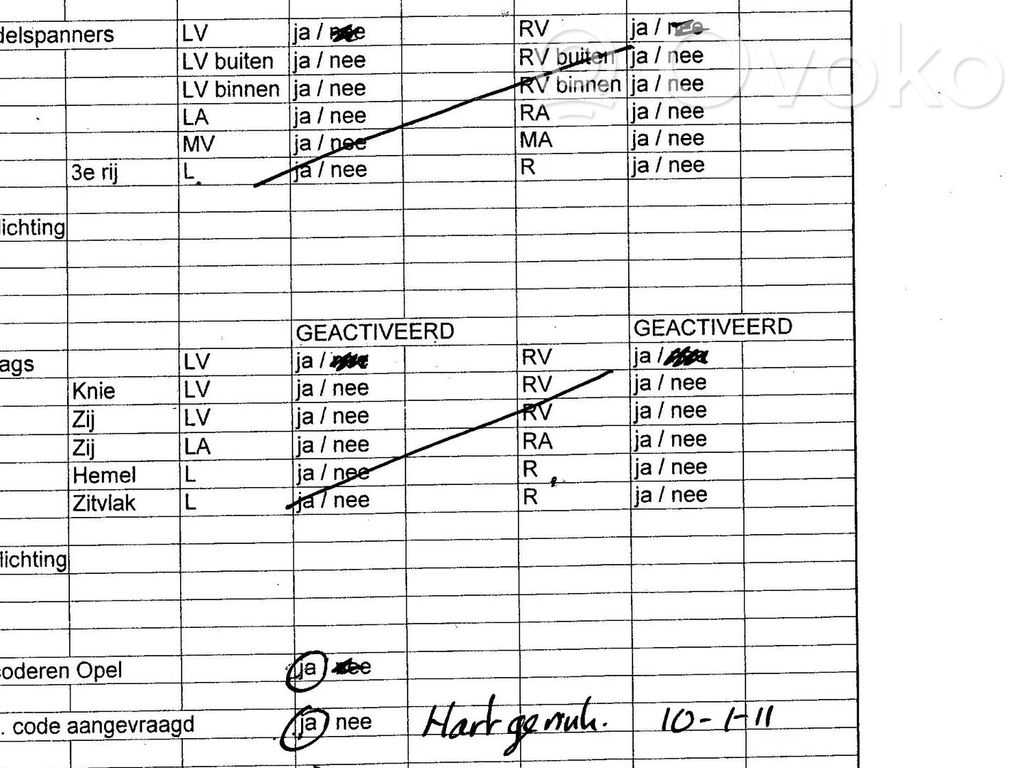 delspanners LV ja / nee RV ja / nee
LV buiten ja / nee RV buiten ja / nee
LV binnen ja / nee RV binnen ja / nee
LA ja / nee RA ja / nee
MV ja / nee MA ja / nee
3e rij L ja / nee R ja / nee
lichting
GEACTIVEERD GEACTIVEERD
ags LV ja / RV ja /
Knie LV ja / nee RV ja / nee
Zij LV ja / nee RV ja / nee
Zij LA ja / nee RA ja / nee
Hemel L ja / nee R ja / nee
Zitvlak L ja / nee R ja / nee
lichting
oderen Opel ja nee
. code aangevraagd ja nee Hart 10-1-11
Ovoko